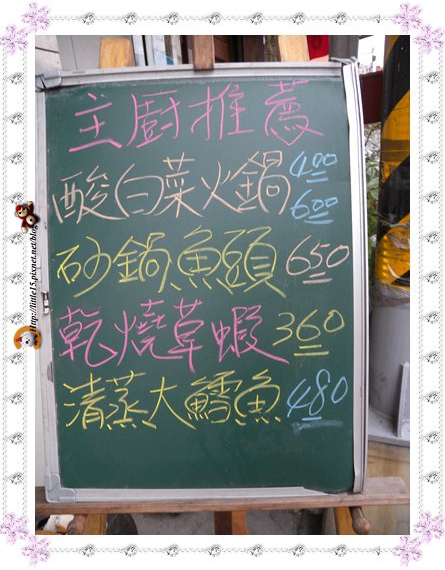 主廚推薦
酸白菜火鍋 400 600
砂鍋魚頭 650
乾燒草蝦 360
清蒸大鱈魚 480
http://little15.pixnet.net/blog